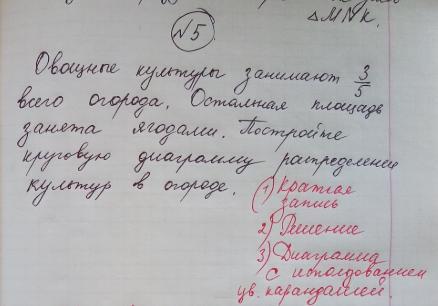 △MNK.
№5
Овощные культуры занимают 3/5
всего огорода. Остальная площадь
занята ягодами. Постройте
круговую диаграмму распределения
культур в огороде.
1) Краткая
запись
2) Решение
3) Диаграмма
с использованием
цв. карандашей.